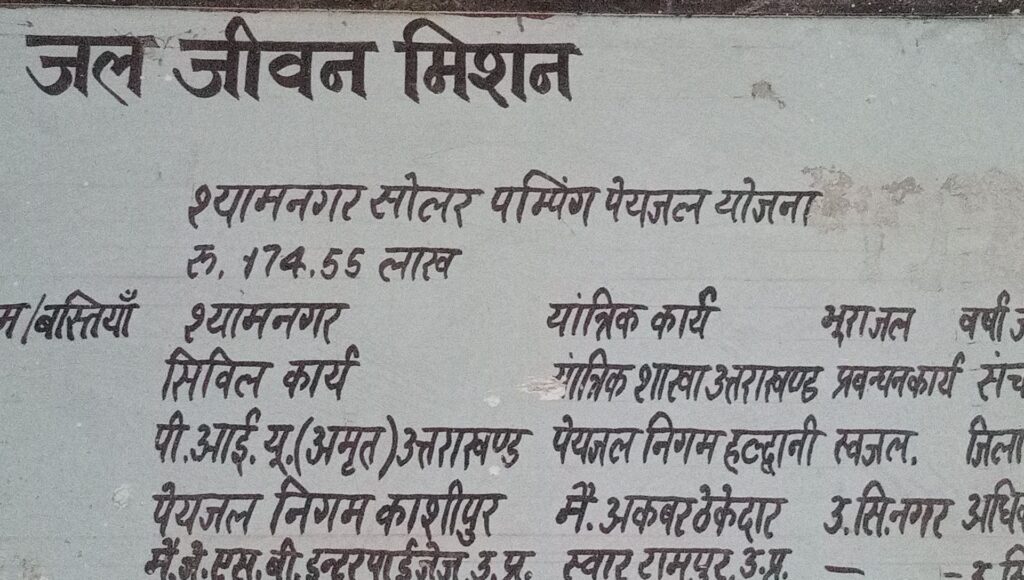 जल जीवन मिशन
श्यामनगर सोलर पम्पिंग पेयजल योजना
रु. 174.55 लाख
म/बस्तियाँ श्यामनगर यांत्रिक कार्य भूराजल वर्षा
सिविल कार्य यांत्रिक शाखा उत्तराखण्ड प्रबन्धन कार्य संच
पी.आई.यू.(अमृत) उत्तराखण्ड पेयजल निगम हल्द्वानी स्वजल. जिला
पेयजल निगम काशीपुर मै. अकबर ठेकेदार उ.सि.नगर अधि
मै.जे.एस.बी.इन्टरपाईजेज उ.प्र. स्वार रामपुर उ.प्र. —